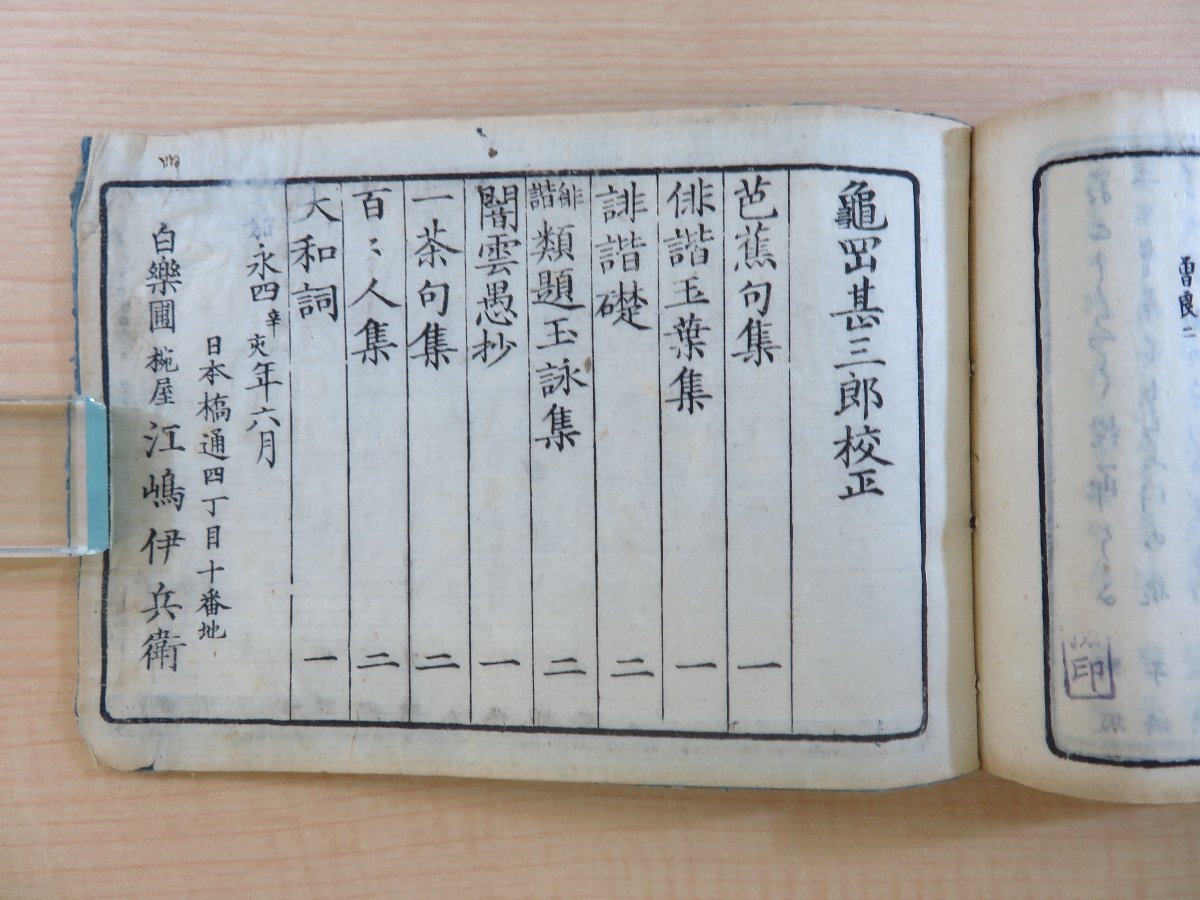 曽良二
印
龜岡甚三郎校正
芭蕉句集 一
俳諧玉葉集 一
誹諧礎 二
俳諧類題玉詠集 二
闇雲愚抄 一
一茶句集 二
百〻人集 二
大和詞 一
嘉永四辛亥年六月
日本橋通四丁目十番地
白樂圃 椀屋 江嶋伊兵衛